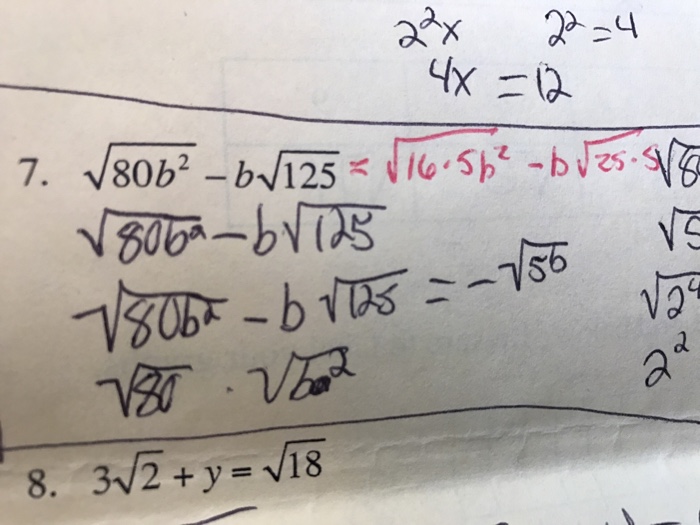 2²x 2² = 4
4x = 12
7. √80b² – b√125 = √16·5b² – b√25·5
√80b² – b√125 √8
√80b² – b√125 = –√5b √5
√80 · √b² √2⁴
2²
8. 3√2 + y = √18